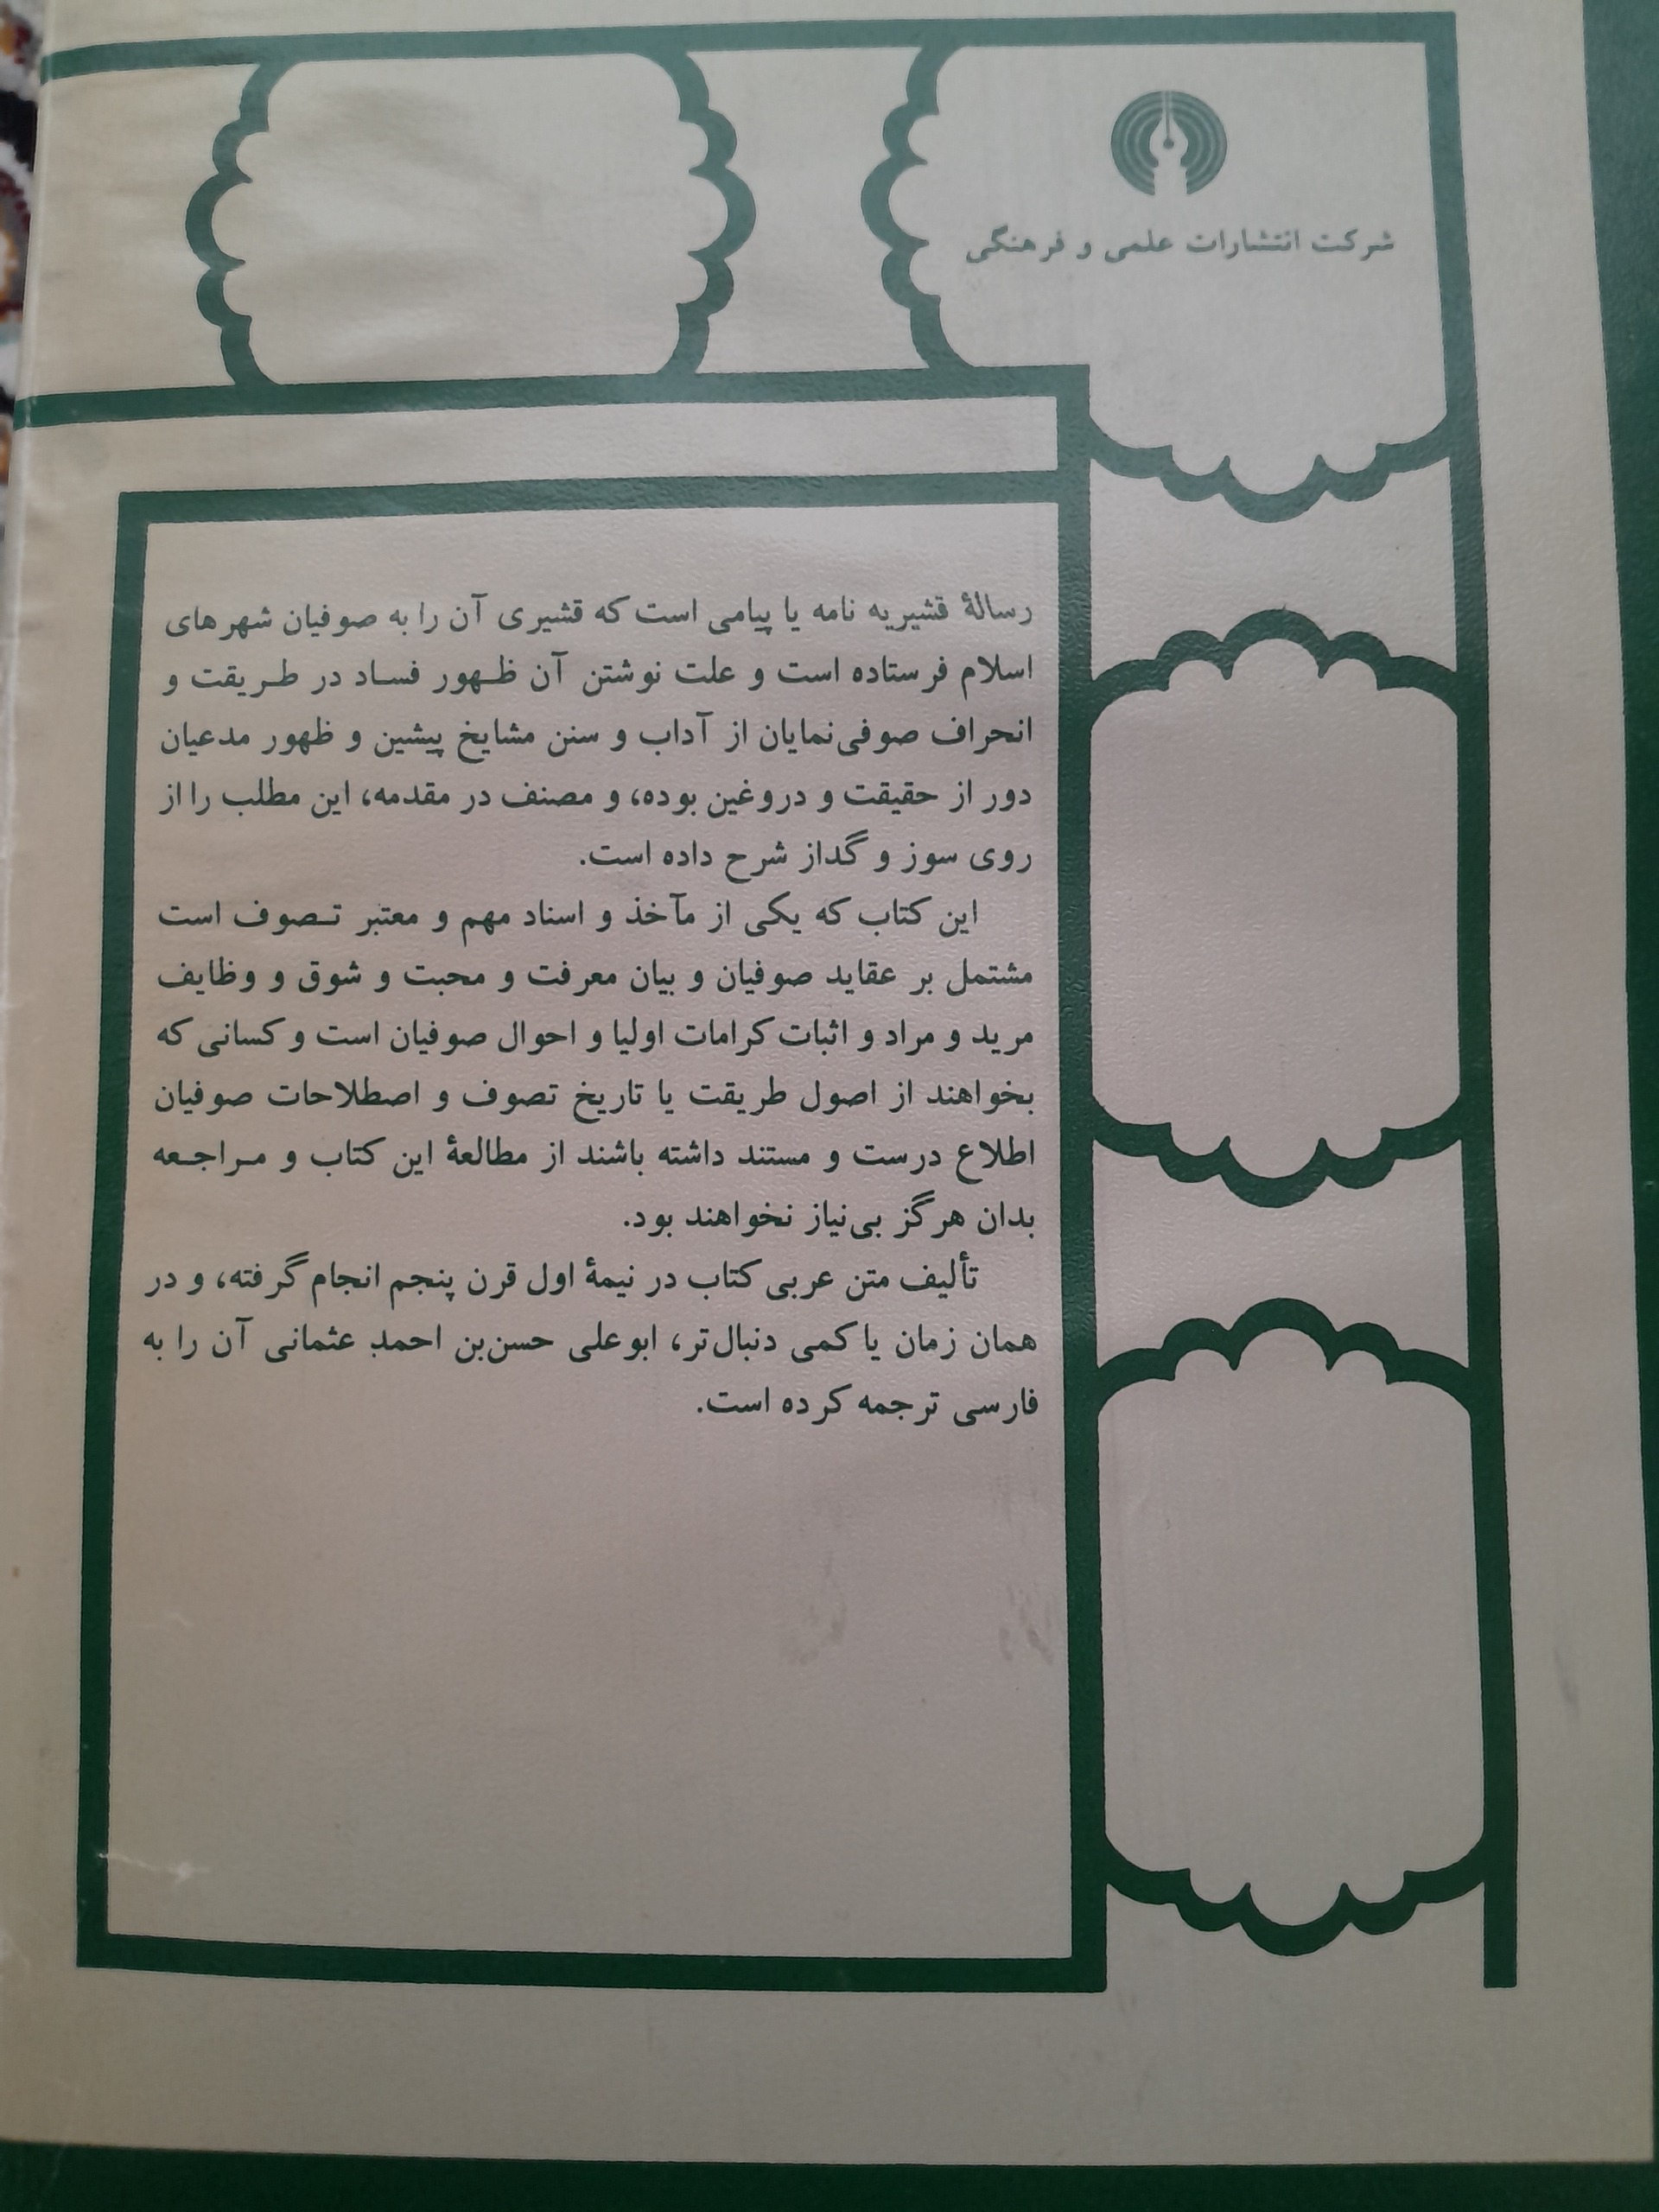 شرکت انتشارات علمی و فرهنگی
رسالهٔ قشیریه نامه یا پیامی است که قشیری آن را به صوفیان شهرهای
اسلام فرستاده است و علت نوشتن آن ظهور فساد در طریقت و
انحراف صوفی‌نمایان از آداب و سنن مشایخ پیشین و ظهور مدعیان
دور از حقیقت و دروغین بوده، و مصنف در مقدمه، این مطلب را از
روی سوز و گداز شرح داده است.
این کتاب که یکی از مآخذ و اسناد مهم و معتبر تصوف است
مشتمل بر عقاید صوفیان و بیان معرفت و محبت و شوق و وظایف
مرید و مراد و اثبات کرامات اولیا و احوال صوفیان است و کسانی که
بخواهند از اصول طریقت یا تاریخ تصوف و اصطلاحات صوفیان
اطلاع درست و مستند داشته باشند از مطالعهٔ این کتاب و مراجعه
بدان هرگز بی‌نیاز نخواهند بود.
تألیف متن عربی کتاب در نیمهٔ اول قرن پنجم انجام گرفته، و در
همان زمان یا کمی دنبال‌تر، ابوعلی حسن‌بن احمد عثمانی آن را به
فارسی ترجمه کرده است.